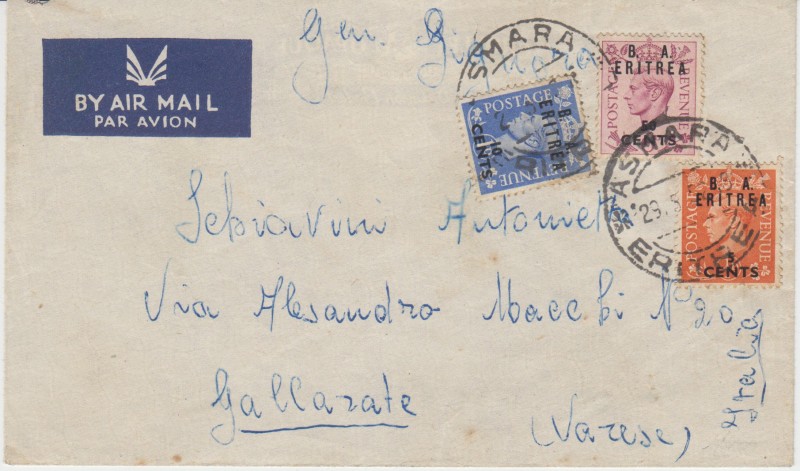 BY AIR MAIL
PAR AVION
Gen. Sig.nora
SMARA
POSTAGE
REVENUE
B. A.
ERITREA
10
CENTS
POSTAGE
REVENUE
B. A.
ERITREA
50
CENTS
ASMARA
29.5
POSTAGE
REVENUE
B. A.
ERITREA
5
CENTS
Schiavini Antoniet
Via Alesandro Macchi N° 20
Gallarate
(Varese)
Italia